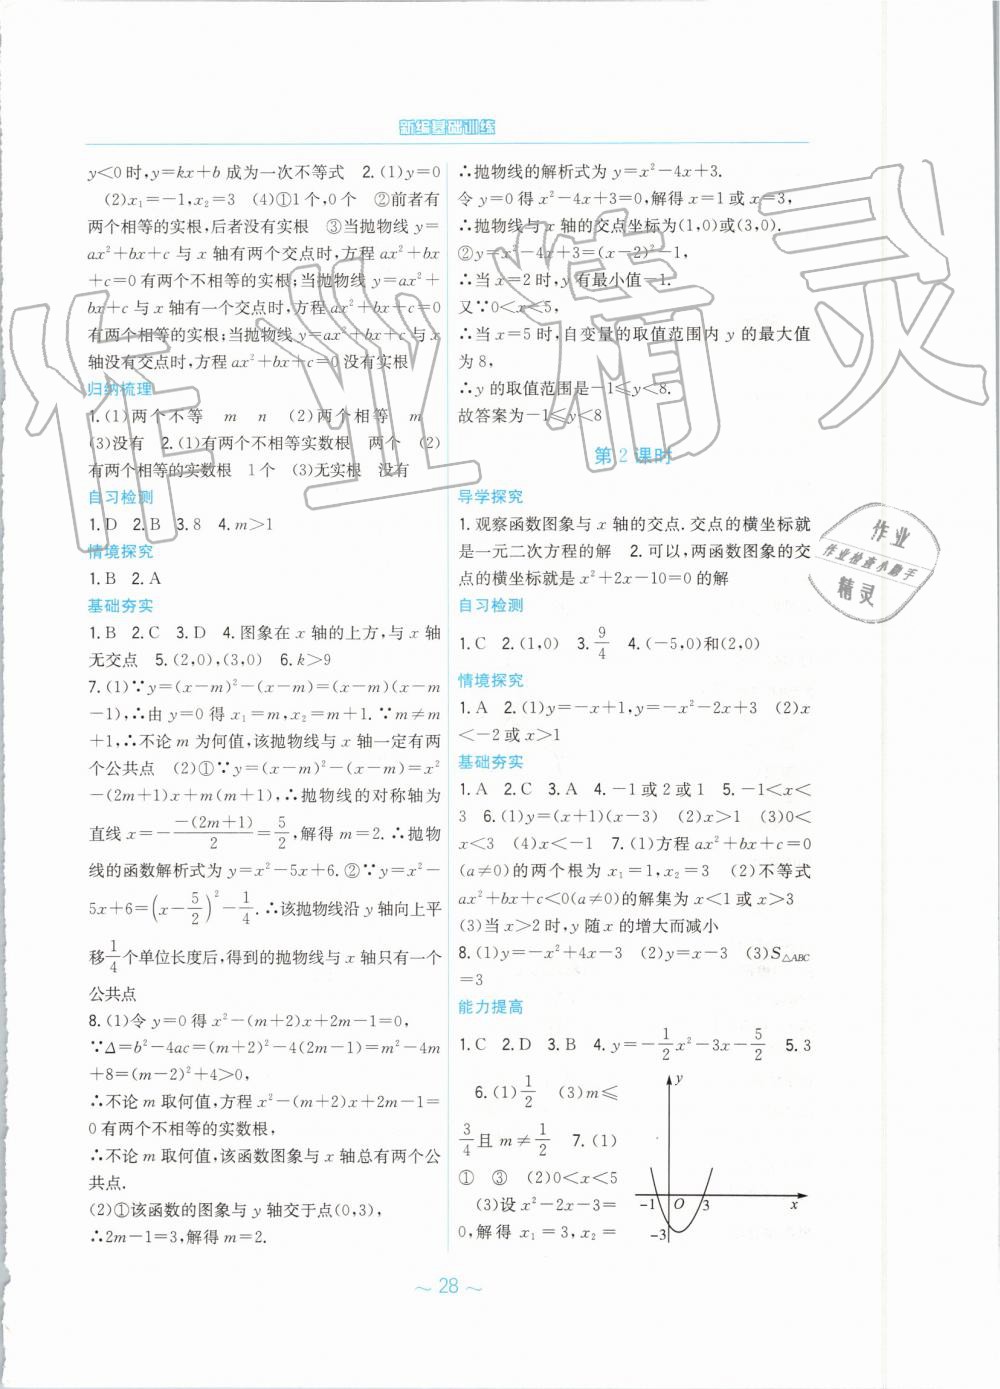 新编基础训练
y<0时,y=kx+b成为一次不等式 2.(1)y=0
(2)x₁=-1,x₂=3 (4)①1个,0个 ②前者有
两个相等的实根,后者没有实根 ③当抛物线y=
ax²+bx+c与x轴有两个交点时,方程ax²+bx
+c=0有两个不相等的实根;当抛物线y=ax²+
bx+c与x轴有一个交点时,方程ax²+bx+c=0
有两个相等的实根;当抛物线y=ax²+bx+c与x
轴没有交点时,方程ax²+bx+c=0没有实根
归纳梳理
1.(1)两个不等 m n (2)两个相等 m
(3)没有 2.(1)有两个不相等实数根 两个 (2)
有两个相等的实数根 1个 (3)无实根 没有
自习检测
1.D 2.B 3.8 4.m>1
情境探究
1.B 2.A
基础夯实
1.B 2.C 3.D 4.图象在x轴的上方,与x轴
无交点 5.(2,0),(3,0) 6.k>9
7.(1)∵y=(x-m)²-(x-m)=(x-m)(x-m
-1),∴由y=0得x₁=m,x₂=m+1.∵m≠m
+1,∴不论m为何值,该抛物线与x轴一定有两
个公共点 (2)①∵y=(x-m)²-(x-m)=x²
-(2m+1)x+m(m+1),∴抛物线的对称轴为
直线x=-\frac{-(2m+1)}{2}=\frac{5}{2},解得m=2.∴抛物
线的函数解析式为y=x²-5x+6.②∵y=x²-
5x+6=(x-\frac{5}{2})²-\frac{1}{4}.∴该抛物线沿y轴向上平
移\frac{1}{4}个单位长度后,得到的抛物线与x轴只有一个
公共点
8.(1)令y=0得x²-(m+2)x+2m-1=0,
∵Δ=b²-4ac=(m+2)²-4(2m-1)=m²-4m
+8=(m-2)²+4>0,
∴不论m取何值,方程x²-(m+2)x+2m-1=
0有两个不相等的实数根,
∴不论m取何值,该函数图象与x轴总有两个公
共点.
(2)①该函数的图象与y轴交于点(0,3),
∴2m-1=3,解得m=2.
∴抛物线的解析式为y=x²-4x+3.
令y=0得x²-4x+3=0,解得x=1或x=3,
∴抛物线与x轴的交点坐标为(1,0)或(3,0).
②y=x²-4x+3=(x-2)²-1,
∴当x=2时,y有最小值-1.
又∵0<x<5,
∴当x=5时,自变量的取值范围内y的最大值
为8,
∴y的取值范围是-1≤y<8.
故答案为-1≤y<8
第2课时
导学探究
1.观察函数图象与x轴的交点.交点的横坐标就
是一元二次方程的解 2.可以,两函数图象的交
点的横坐标就是x²+2x-10=0的解
自习检测
1.C 2.(1,0) 3.\frac{9}{4} 4.(-5,0)和(2,0)
情境探究
1.A 2.(1)y=-x+1,y=-x²-2x+3 (2)x
<-2或x>1
基础夯实
1.A 2.C 3.A 4.-1或2或1 5.-1<x<
3 6.(1)y=(x+1)(x-3) (2)x>1 (3)0<
x<3 (4)x<-1 7.(1)方程ax²+bx+c=0
(a≠0)的两个根为x₁=1,x₂=3 (2)不等式
ax²+bx+c<0(a≠0)的解集为x<1或x>3
(3)当x>2时,y随x的增大而减小
8.(1)y=-x²+4x-3 (2)y=x-3 (3)S△ABC
=3
能力提高
1.C 2.D 3.B 4.y=-\frac{1}{2}x²-3x-\frac{5}{2} 5.3
6.(1)\frac{1}{2} (3)m≤
\frac{3}{4}且m≠\frac{1}{2} 7.(1)
① ③ (2)0<x<5
(3)设x²-2x-3=
0,解得x₁=3,x₂=
y
-1 O 3 x
-3
～28～
作业精灵
作业
作业检查小助手
精灵